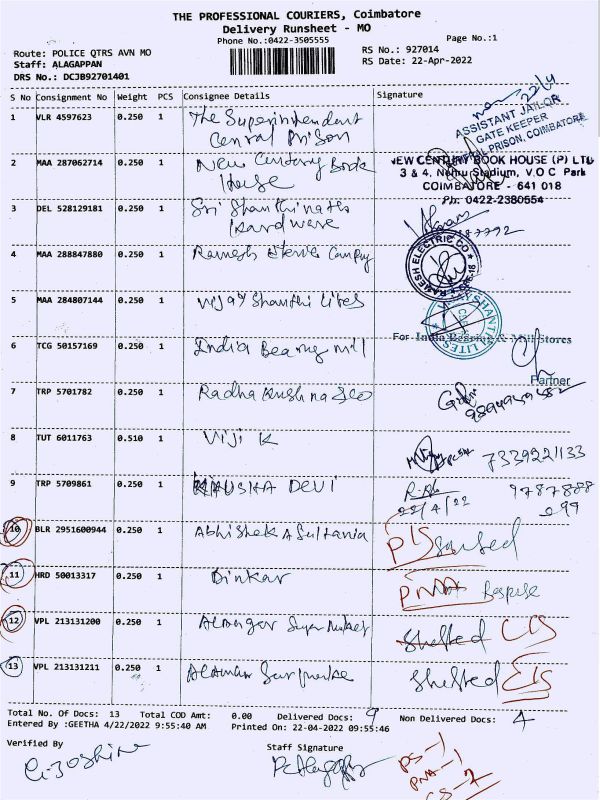 THE PROFESSIONAL COURIERS, Coimbatore
Delivery Runsheet - MO
Phone No.:0422-3505555
Page No.:1
Route: POLICE QTRS AVN MO
RS No.: 927014
Staff: ALAGAPPAN
RS Date: 22-Apr-2022
DRS No.: DCJB92701401
S No Consignment No Weight PCS Consignee Details Signature
1 VLR 4597623 0.250 1 The Superintendent
Central Prison
22/4
ASSISTANT JAILOR
GATE KEEPER
PRISON, COIMBATORE
2 MAA 287062714 0.250 1 New Century Book
House
NEW CENTURY BOOK HOUSE (P) LTD
3 & 4, Nehru Stadium, V.O.C Park
COIMBATORE - 641 018
Ph: 0422-2380554
3 DEL 528129181 0.250 1 Sri Shanthinath
Hardware
4 MAA 288847880 0.250 1 Ramesh Electric Company
RAMESH ELECTRIC CO
5 MAA 284807144 0.250 1 Vijay Shanthi Lites
VIJAY SHANTHI LITES
6 TCG 50157169 0.250 1 India Bearing mill
For India Bearing & Mill Stores
Partner
7 TRP 5701782 0.250 1 Radha Krushna
8 TUT 6011763 0.510 1 Viji K
7339221133
9 TRP 5709861 0.250 1 KAUSIKA DEVI
22/4/22
9787888
10 BLR 2951600944 0.250 1 Abhishek A Sultania
11 HRD 50013317 0.250 1 Dinkar
PNA
12 VPL 213131200 0.250 1
Shefted
13 VPL 213131211 0.250 1
Shefted
Total No. Of Docs: 13 Total COD Amt: 0.00 Delivered Docs: 9 Non Delivered Docs: 4
Entered By :GEETHA 4/22/2022 9:55:40 AM Printed On: 22-04-2022 09:55:46
Verified By
Staff Signature
PS-1
PNA-1